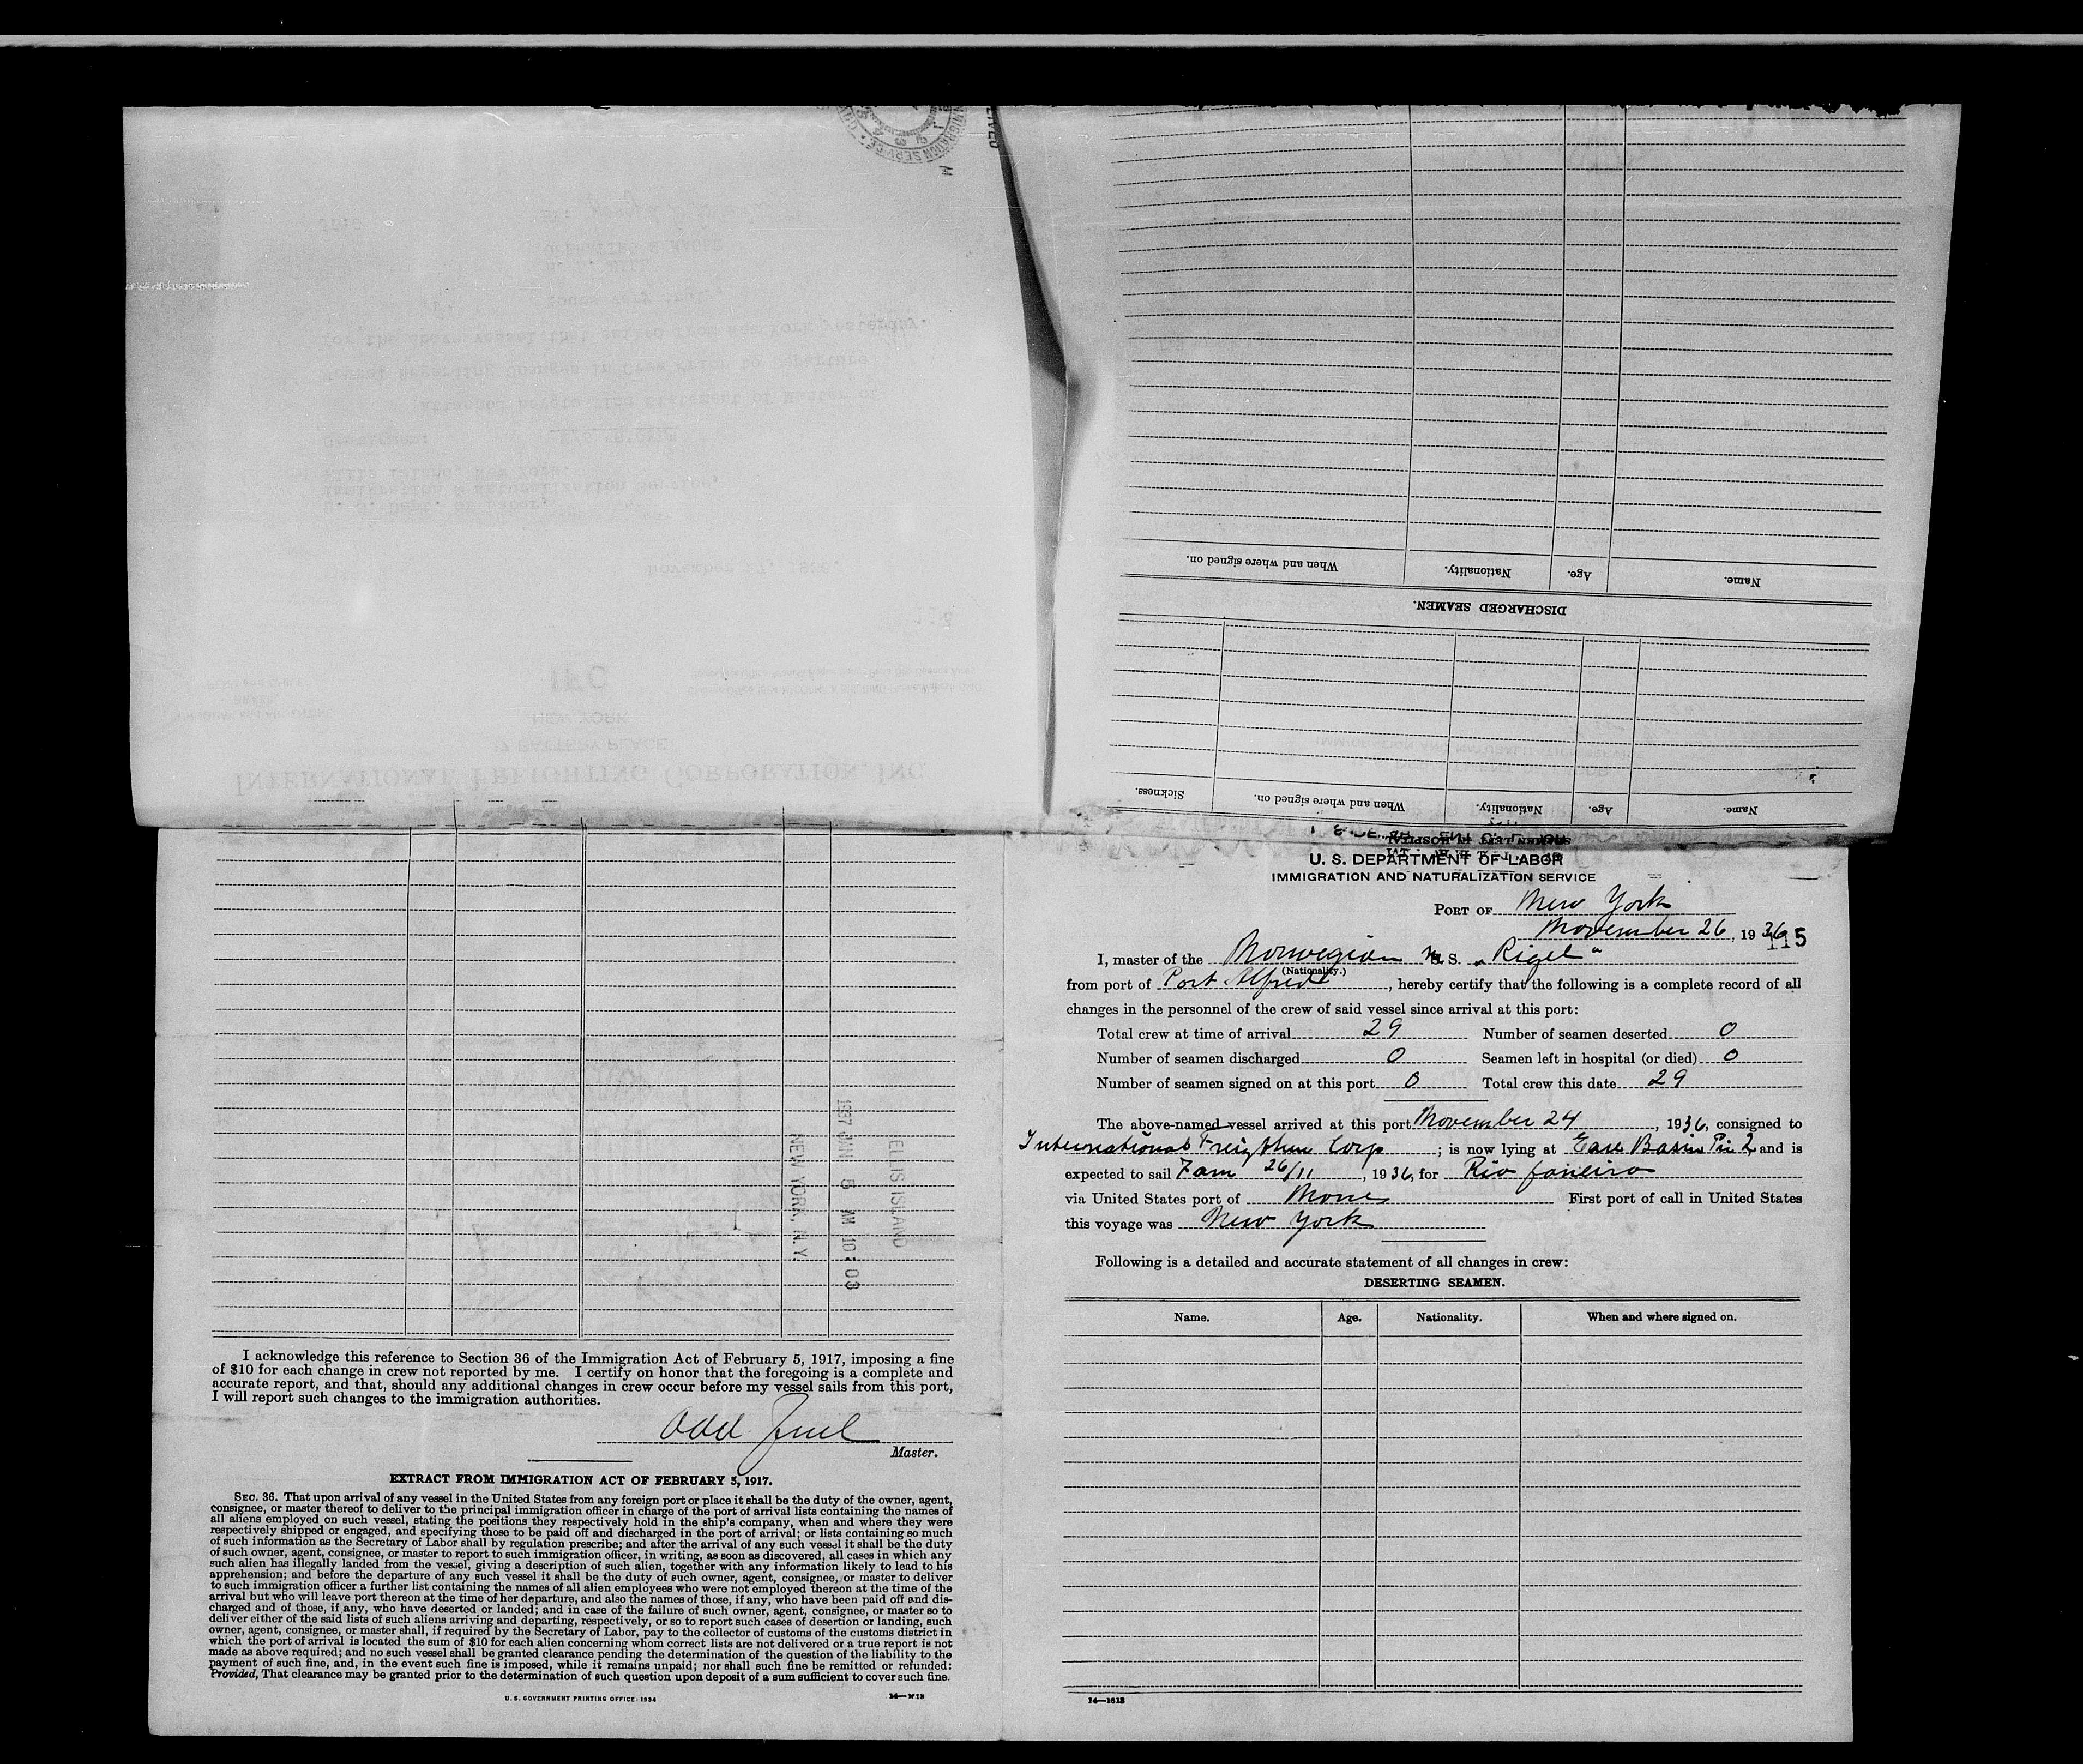 IMMIGRATION SERVICE
M
Name.
Age.
Nationality.
When and where signed on.
DISCHARGED SEAMEN.
Name.
Age.
Nationality.
When and where signed on.
Sickness.
SEAMEN LEFT IN HOSPITAL
INTERNATIONAL FREIGHTING CORPORATION, INC.
17 BATTERY PLACE
NEW YORK
IFC
November 27, 1936.
U. S. Dept. of Labor,
Immigration & Naturalization Service,
Ellis Island, New York.
Gentlemen:
M/S "RIGEL"
Attached hereto find Statement of Master of
Vessel Regarding Changes in Crew Prior to Departure
for the above vessel that sailed from New York yesterday.
Yours very truly,
U. S. DEPARTMENT OF LABOR
IMMIGRATION AND NATURALIZATION SERVICE
PORT OF New York
November 26, 1936
115
I, master of the Norwegian M. S. "Rigel"
(Nationality.)
from port of Port Alfred, hereby certify that the following is a complete record of all
changes in the personnel of the crew of said vessel since arrival at this port:
Total crew at time of arrival 29 Number of seamen deserted 0
Number of seamen discharged 0 Seamen left in hospital (or died) 0
Number of seamen signed on at this port 0 Total crew this date 29
The above-named vessel arrived at this port November 24, 1936, consigned to
International Corp; is now lying at Basin 2 and is
expected to sail 7 am 26/11, 1936, for Rio Janeiro
via United States port of None First port of call in United States
this voyage was New York
Following is a detailed and accurate statement of all changes in crew:
DESERTING SEAMEN.
Name. Age. Nationality. When and where signed on.
14—1613
ELLIS ISLAND
1937 JAN 5 AM 10:03
NEW YORK, N. Y.
I acknowledge this reference to Section 36 of the Immigration Act of February 5, 1917, imposing a fine
of $10 for each change in crew not reported by me. I certify on honor that the foregoing is a complete and
accurate report, and that, should any additional changes in crew occur before my vessel sails from this port,
I will report such changes to the immigration authorities.
Odd Juel
Master.
EXTRACT FROM IMMIGRATION ACT OF FEBRUARY 5, 1917.
SEC. 36. That upon arrival of any vessel in the United States from any foreign port or place it shall be the duty of the owner, agent,
consignee, or master thereof to deliver to the principal immigration officer in charge of the port of arrival lists containing the names of
all aliens employed on such vessel, stating the positions they respectively hold in the ship's company, when and where they were
respectively shipped or engaged, and specifying those to be paid off and discharged in the port of arrival; or lists containing so much
of such information as the Secretary of Labor shall by regulation prescribe; and after the arrival of any such vessel it shall be the duty
of such owner, agent, consignee, or master to report to such immigration officer, in writing, as soon as discovered, all cases in which any
such alien has illegally landed from the vessel, giving a description of such alien, together with any information likely to lead to his
apprehension; and before the departure of any such vessel it shall be the duty of such owner, agent, consignee, or master to deliver
to such immigration officer a further list containing the names of all alien employees who were not employed thereon at the time of the
arrival but who will leave port thereon at the time of her departure, and also the names of those, if any, who have been paid off and dis-
charged and of those, if any, who have deserted or landed; and in case of the failure of such owner, agent, consignee, or master so to
deliver either of the said lists of such aliens arriving and departing, respectively, or so to report such cases of desertion or landing, such
owner, agent, consignee, or master shall, if required by the Secretary of Labor, pay to the collector of customs of the customs district in
which the port of arrival is located the sum of $10 for each alien concerning whom correct lists are not delivered or a true report is not
made as above required; and no such vessel shall be granted clearance pending the determination of the question of the liability to the
payment of such fine, and, in the event such fine is imposed, while it remains unpaid; nor shall such fine be remitted or refunded:
Provided, That clearance may be granted prior to the determination of such question upon deposit of a sum sufficient to cover such fine.
U. S. GOVERNMENT PRINTING OFFICE: 1934
14—1613